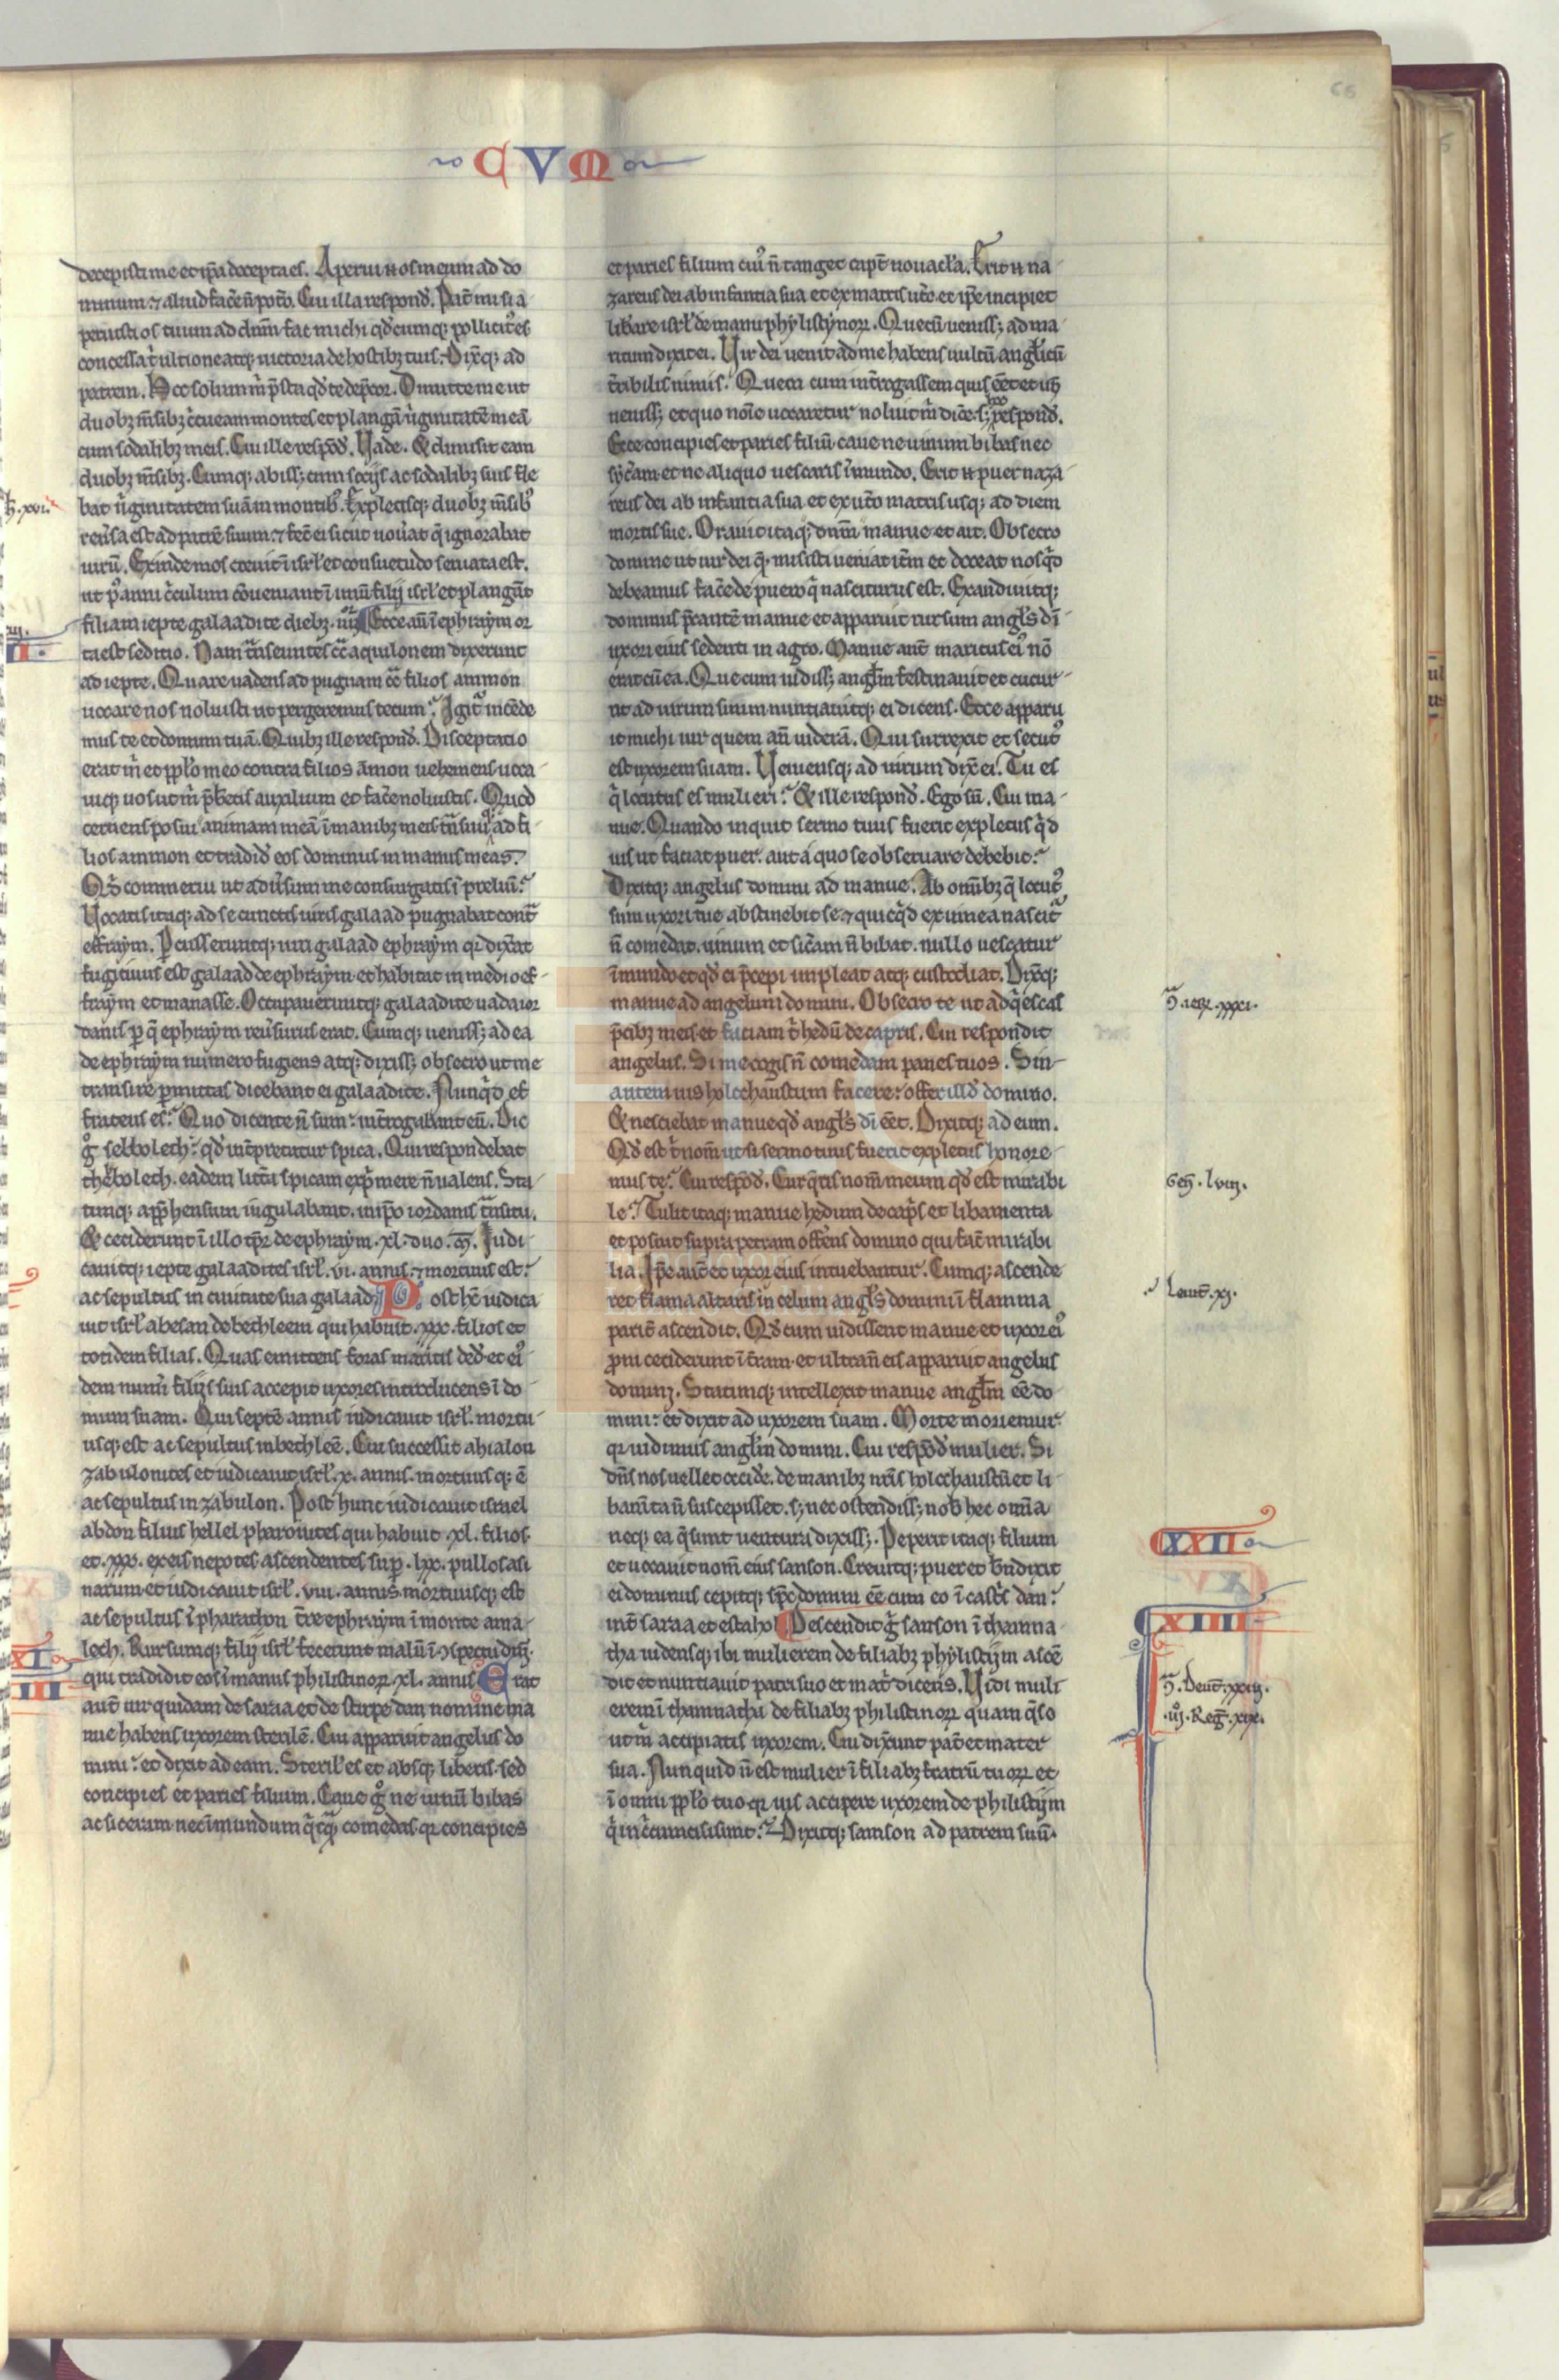 CVM
decepisti me et ip̄a decepta es. Aperui .n. os meum ad do
minum ⁊ aliud fac̄e n̄ pot̄o. Cui illa respond̄. Pat̄ mi si a
peruisti os tuum ad dn̄m fac michi qd̄cumq; pollicit᷒ es
concessa t̄ ultione atq; uictoria de hostibꝫ tuis. Dix̄q; ad
patrem. Hoc solum m̄ p̄sta qd̄ te dep̄cor. Dimitte me ut
duobꝫ m̄sibꝫ c̄cueam montes et plangā ũginitatē meā
cum sodalibꝫ meis. Cui ille respōd̄. Vade. Et dimisit eam
duobꝫ m̄sibꝫ. Cumq; abiss; cum socijs ac sodalibꝫ suis fle
bat ũginitatem suam in montib᷒. Expletisq; duobꝫ m̄sib᷒
reũsa est ad patrē suum ⁊ fec̄ ei sicut uoũat q̄ ignorabat
uirū. Exinde mos creuit ī isrł et consuetudo seruata est.
ut p᷒ anni c̄culum cōueniant ī unū filij isrł et plangāt
filiam iepte galaadite diebꝫ .iiij. Ecce aū ī ephraym or
ta est seditio. Nam t̄nseuntes cc̄ aquilonem dixerunt
ad iepte. Quare uadens ad pugnam cc̄ filios ammon
uocare nos noluisti ut pergeremus tecum? Igit̄ incēde
mus te et domum tuā. Quibꝫ ille respond̄. Disceptatio
erat m̄ et ppło meo contra filios āmon uehemens uoca
uiq; uos ut m̄ p̄beretis auxilium et fac̄e noluistis. Quod
cernens posui animam meā ī manibꝫ meis t̄nsiuiq; ad fi
lios ammon et tradid̄ eos dominus in manus meas.
Qd̄ commerui ut adũsum me consurgatis ī preliū?
Vocatis itaq; ad se cunctis uiris galaad pugnabat cont̄
effraym. Percusseruntq; uiri galaad ephraym qr dix̄at
fugitiuus est galaad de ephraym et habitat in medio ef
fraym et manasse. Occupaueruntq; galaadite uada ior
danis p q̄ ephraym reũsurus erat. Cumq; ueniss; ad ea
de ephraym numero fugiens atq; dixiss; obsecro ut me
transire pmittas dicebant ei galaadite. Nunq̄d ef
frateus es? Quo dicente n̄ sum int̄rogabant eū. Dic
g᷒ sebbolech qd̄ int̄pretatur spica. Qui respondebat
thebolech. eadem litt̄a spicam exp̄mere n̄ ualens. Sta
timq; app̄hensum iugulabant. in ip̄o iordanis t̄nsitu.
Et ceciderunt ī illo tp̄r de ephraym .xl. duo .m̄. Iudi
cauitq; iepte galaadites isrł .vi. annis ⁊ mortuus est
ac sepultus in ciuitate sua galaad. Post hē iudica
uit isrł abesan de bechleem qui habuit .xxx. filios et
totidem filias. Quas emittens foras maritis ded̄ et ei᷒
dem num̄i filijs suis accepit uxores introducens ī do
mum suam. Qui septē annis iudicauit isrł. mortu
usq; est ac sepultus in bechleē. Cui successit ahialon
zabulonites et iudicauit isrł .x. annis. mortuusq; ē
ac sepultus in zabulon. Post hunc iudicauit israel
abdon filius hellel pharonites qui habuit .xl. filios.
et .xxx. ex eis nepotes ascendentes sup̄ .lxx. pullos asi
narum et iudicauit isrł .viii. annis mortuusq; est
ac sepultus ī pharathon t̄re ephraym ī monte ama
lech. Rursumq; filij isrł fecerunt malū ī ɔspectu dn̄i
qui tradidit eos ī manus philistinoꝝ .xl. annis. Erat
aut̄ uir quidam de saraa et de stirpe dan nomine ma
nue habens uxorem sterilē. Cui apparuit angelus do
mini et dixit ad eam. Steril᷒ es et absq; liberis sed
concipies et paries filium. Caue g᷒ ne uinū bibas
ac siceram nec īmundum q̄cq̄ comedas qr concipies
et paries filium cui᷒ n̄ tanget capt̄ nouacła. Erit .n. na
zareus dei ab infantia sua et ex matris ut̄o. et ip̄e incipiet
lib̄are isrł de manu phylistynoꝝ. Que cū ueniss; ad ma
ritum dixit ei. Vir dei uenit ad me habens uultū angłicū
t̄ribilis nimis. Quem cum int̄rogassem quis eēt et uñ
ueniss; et quo noīe uocaretur noluit m̄ dic̄e. s; respond̄.
Ecce concipies et paries filiū caue ne uinum bibas nec
syc̄am et ne aliquo uescaris īmundo. Erit .n. puer naza
reus dei ab infantia sua et ex ut̄o matris usq; ad diem
mortis sue. Orauit itaq; dn̄m manue et ait. Obsecro
domine ut uir dei q̄ misisti ueniat it̄m et doceat nos q̄d
debeamus fac̄e de puero q̄ nasciturus est. Exaudiuitq;
dominus p̄cantē manue et apparuit rursum angł᷒s dī
uxori eius sedenti in agro. Manue aut̄ maritus ei᷒ nō
erat cū ea. Que cum uidiss; angłm festinauit et cucur
rit ad uirum suum nuntiauitq; ei dicens. Ecce apparu
it michi uir quem an̄ uiderā. Qui surrexit et secut᷒
est uxorem suam. Veniensq; ad uirum dix̄ ei. Tu es
q̄ locutus es mulieri? Et ille respond̄. Ego sū. Cui ma
nue. Quando inquit sermo tuus fuerit expletus q̄d
uis ut faciat puer. aut a quo se obseruare debebit?
Dixitq; angelus domini ad manue. Ab om̄ibꝫ q̄ locut᷒
sum uxori tue abstinebit se ⁊ quicq̄d ex uinea nascit̄
n̄ comedat. uinum et sic̄am n̄ bibat. nullo uescatur
īmundo et qd̄ ei p̄cepi impleat atq; custodiat. Dix̄q;
manue ad angelum domini. Obsecro te ut adq̄escas
p̄cibꝫ meis et faciam t̄ hedū de capris. Cui respondit
angelus. Si me cogis n̄ comedam panes tuos. Sin
autem uis holochaustum facere offer illd̄ domino.
Et nesciebat manue qd̄ angł᷒s dī eēt. Dixitq; ad eum.
Qd̄ est t̄ nom̄ ut si sermo tuus fuerit expletus honore
mus te? Cui respōd̄. Cur q̄ris nom̄ meum qd̄ est mirabi
le? Tulit itaq; manue hedum de cap̄s et libamenta
et posuit supra petram offerens domino qui fac̄ mirabi
lia. Ip̄e aut̄ et uxor eius intuebantur. Cumq; ascende
ret flāma altaris in celum angł᷒s domini ī flamma
parit̄ ascendit. Qd̄ cum uidissent manue et uxor ei᷒
proni ceciderunt ī t̄ram et ultra n̄ eis apparuit angelus
domini. Statimq; intellexit manue angłm eē do
mini et dixit ad uxorem suam. Morte moriemur
qr uidimus angłm domini. Cui respōd̄ mulier. Si
dn̄s nos uellet occid̄e. de manibꝫ nr̄is holochaustū et li
bam̄ta n̄ suscepisset. s; nec ostendiss; nob̄ hec om̄ia
neq; ea q̄ sunt uentura dixiss;. Peperit itaq; filium
et uocauit nom̄ eius sanson. Creuitq; puer et b̄ndixit
ei dominus cepitq; sp̄c domini eē cum eo ī cast̄s dan
int̄ saraa et estahol. Descendit g᷒ sanson ī thamna
tha uidensq; ibi mulierem de filiabꝫ phylistijm ascē
dit et nuntiauit patri suo et mat̄ dicens. Vidi muli
erem ī thamnatha de filiabꝫ philistinoꝝ quam q̄so
ut m̄ accipiatis uxorem. Cui dix̄unt pat̄ et mater
sua. Nunquid n̄ est mulier ī filiabꝫ fratrū tuoꝝ et
ī omni ppło tuo qr uis accipere uxorem de philistijm
q̄ inc̄cuncisi sunt? Dixitq; samson ad patrem suū.
XXII
XIIII
Leuit̄. xj.
.iij. Reg. xix.